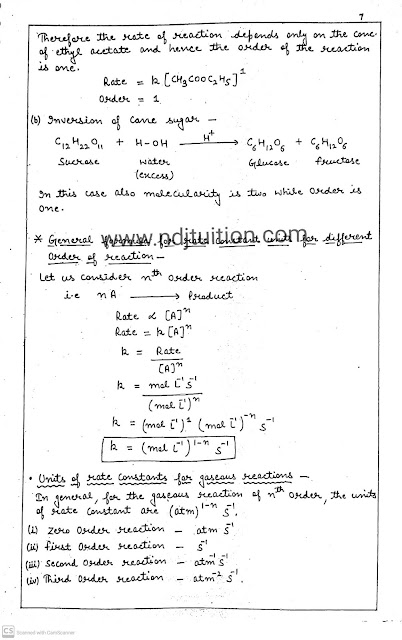 7
Therefore the rate of reaction depends only on the conc
of ethyl acetate and hence the order of the reaction
is one.
Rate = k [CH₃COOC₂H₅]¹
Order = 1
(b) Inversion of cane sugar —
C₁₂H₂₂O₁₁ + H-OH ⟶ H⁺ C₆H₁₂O₆ + C₆H₁₂O₆
Sucrose water Glucose fructose
(excess)
In this case also molecularity is two while order is
one.
www.ndjtuition.com
* General formula for rate constant units for different
order of reaction —
Let us consider nᵗʰ order reaction
i.e nA ⟶ Product
Rate ∝ [A]ⁿ
Rate = k [A]ⁿ
k = Rate
[A]ⁿ
k = mol L⁻¹ s⁻¹
(mol L⁻¹)ⁿ
k = (mol L⁻¹)¹ (mol L⁻¹)⁻ⁿ s⁻¹
k = (mol L⁻¹)¹⁻ⁿ s⁻¹
• Units of rate constants for gaseous reactions —
In general, for the gaseous reaction of nᵗʰ order, the units
of rate constant are (atm)¹⁻ⁿ s⁻¹.
(i) zero order reaction — atm s⁻¹
(ii) first order reaction — s⁻¹
(iii) second order reaction — atm⁻¹ s⁻¹
(iv) Third order reaction — atm⁻² s⁻¹.
CS Scanned with CamScanner